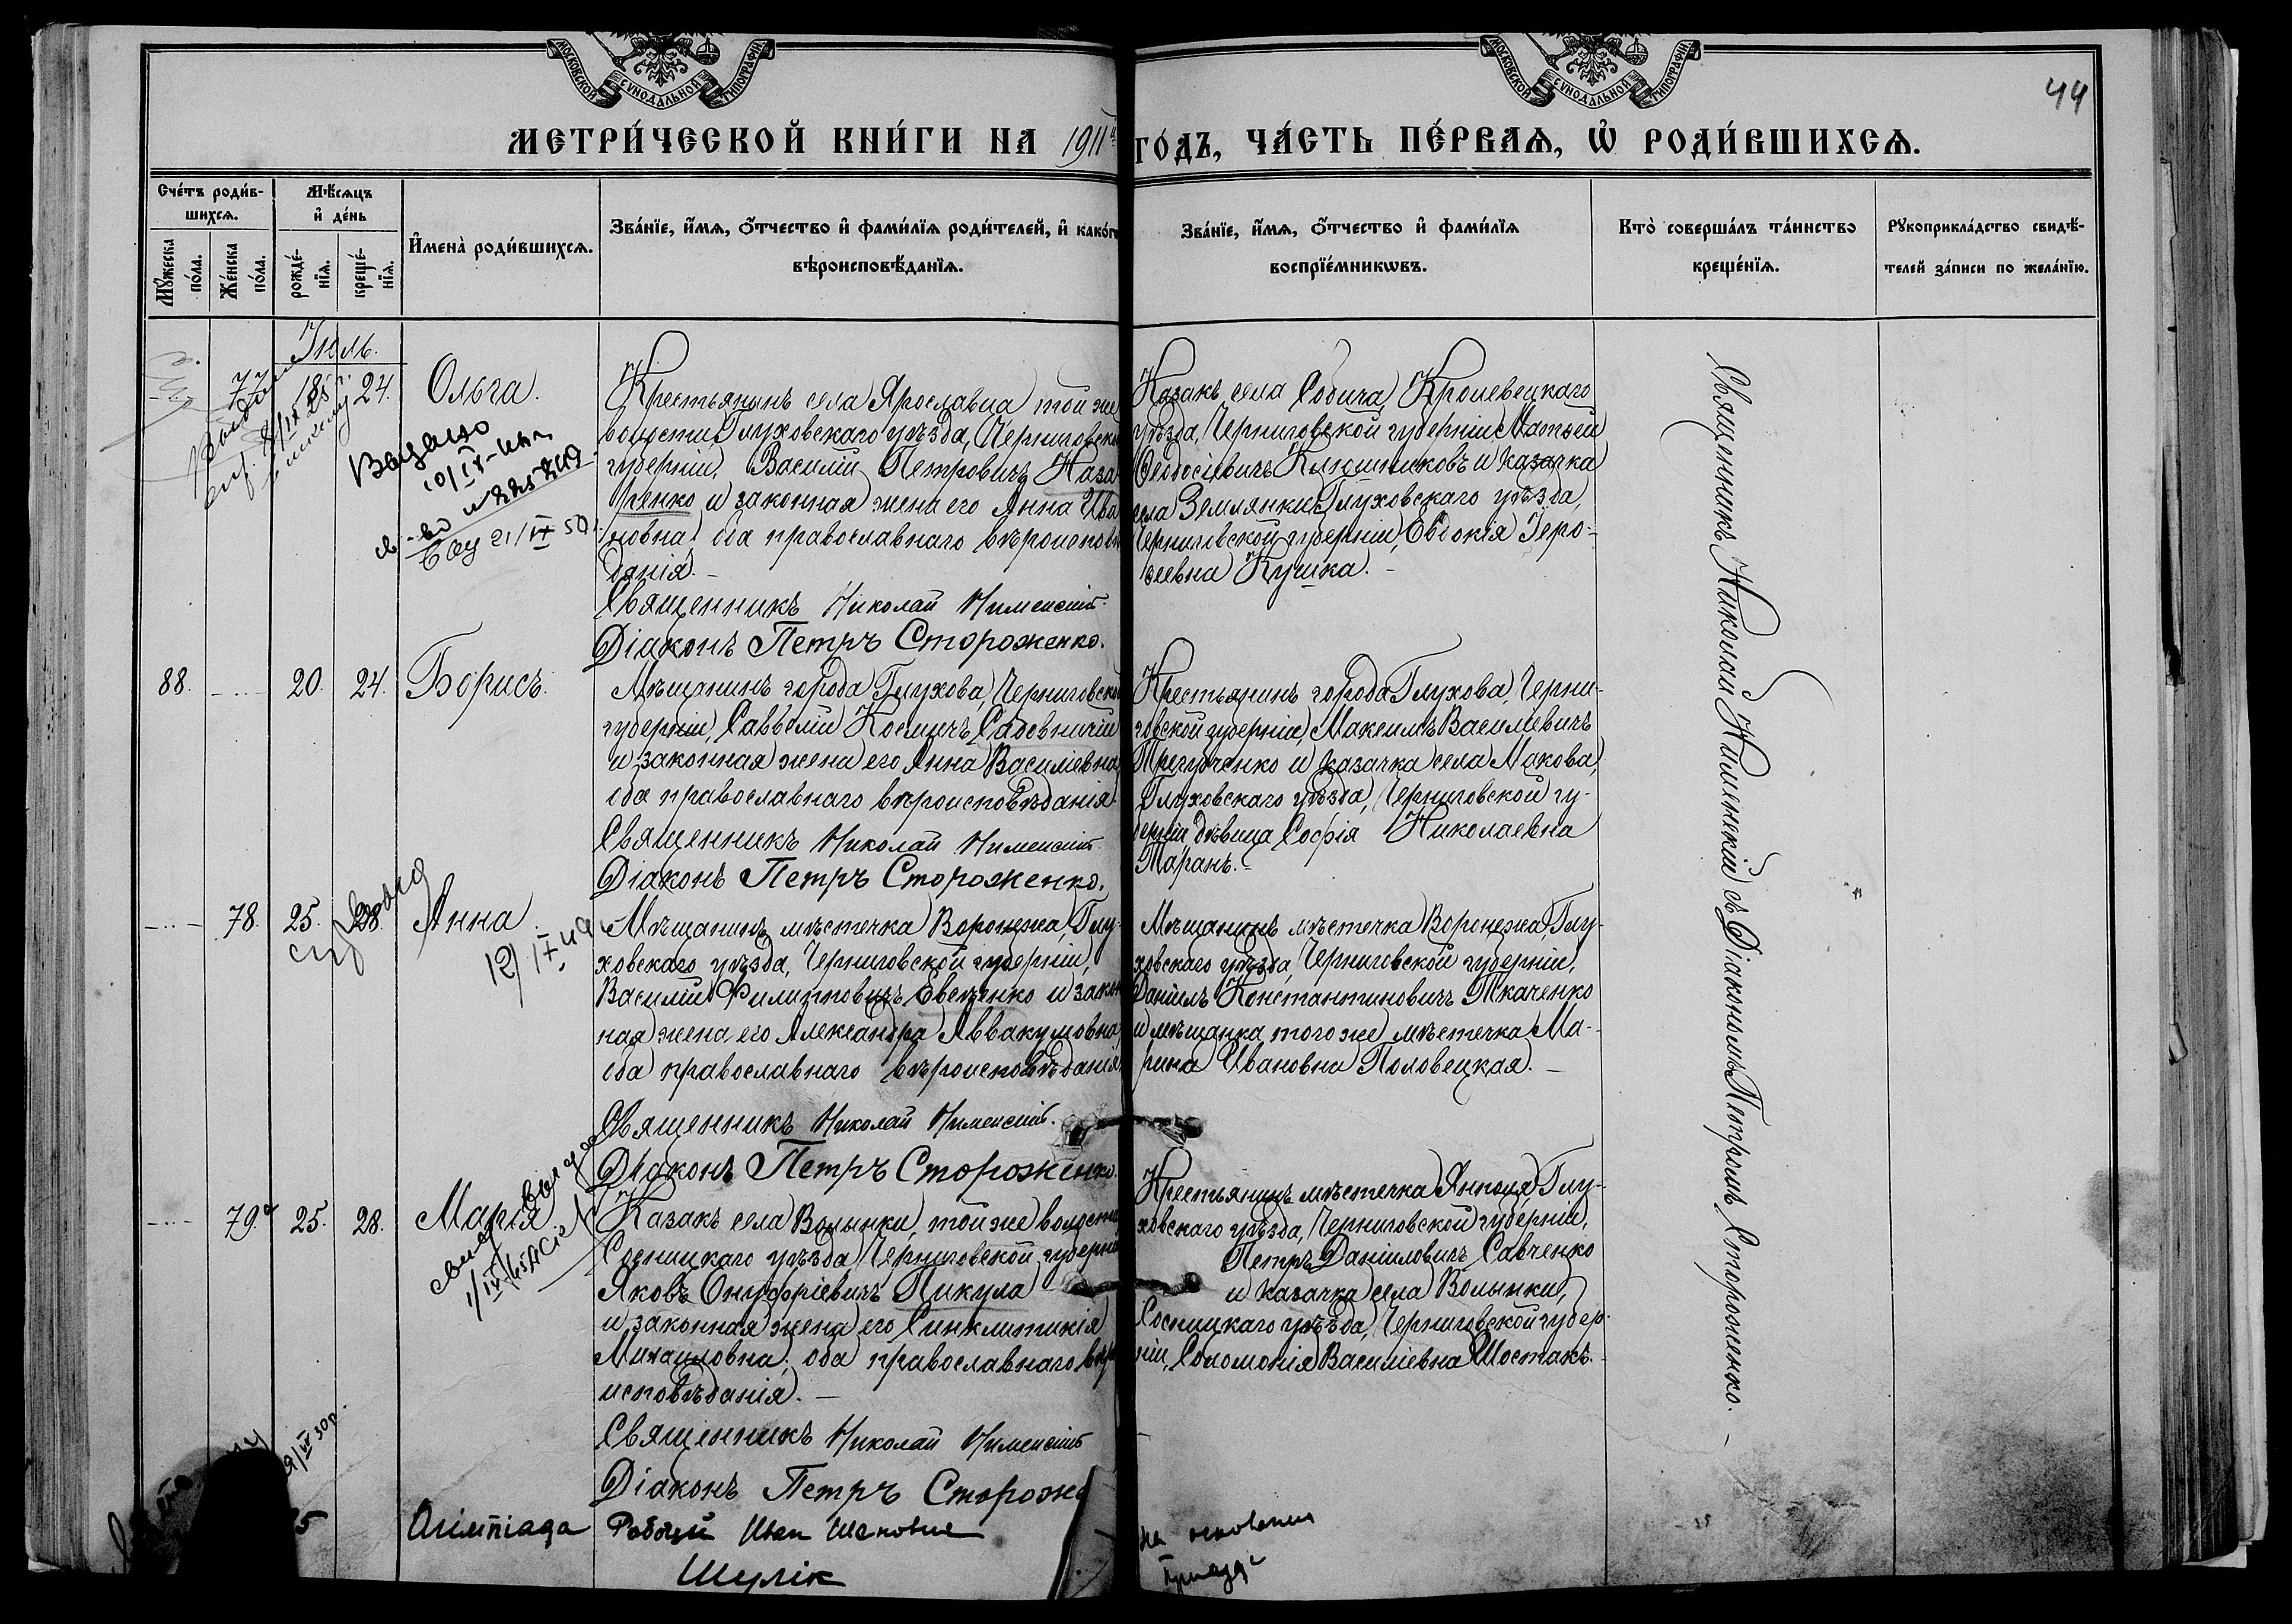 МОСКОВСКОЙ СѴНОДАЛЬНОЙ ТИПОГРАФІИ
МОСКОВСКОЙ СѴНОДАЛЬНОЙ ТИПОГРАФІИ
44
МЕТРИ́ЧЕСКОЙ КНИ́ГИ НА 1911й ГО́ДЪ, ЧА́СТЬ ПЕ́РВАЯ, Ѡ҆ РОДИ́ВШИХСЯ.
Сче́тъ роди́в-
шихся.
Му́жеска по́ла.
Же́нска по́ла.
Мѣ́сяцъ
и҆ де́нь
рожде́-
нїя.
креще́-
нїя.
И҆мена̀ роди́вшихся.
Зва́нїе, и҆́мя, ѻ҆́тчество и҆ фами́лїя роди́телей, и҆ како́гѡ
вѣроисповѣ́данїя.
Зва́нїе, и҆́мя, ѻ҆́тчество и҆ фами́лїя
воспрїе́мникѡвъ.
Кто̀ соверша́лъ та́инство
креще́нїя.
Рꙋкоприкла́дство свидѣ́-
телей за́писи по жела́нїю.
Іюль.
77
18
24.
Ольга.
Крестьянинъ села Ярославца той же
волости, Глуховскаго уѣзда, Черниговской
губерніи, Василій Петровичъ Наза
ренко и законная жена его Анна Ива
новна, оба православнаго вѣроисповѣ
данія. –
Священникъ Николай
Діаконъ Петръ Стороженко.
Казакъ села Собича, Кролевецкаго
уѣзда, Черниговской губерніи, Матѳей
Ѳеодосіевичъ Клюшниковъ и казачка
села Землянки, Глуховскаго уѣзда,
Черниговской губерніи, Евдокія Іеро-
ѳеевна Кушка. –
Выдано
10/IX-
21/IX 50
88.
20.
24.
Борисъ.
Мѣщанинъ города Глухова, Черниговской
губерніи, Савватій Космичъ Садовничій
и законная жена его Анна Василіевна,
оба православнаго вѣроисповѣданія.
Священникъ Николай
Діаконъ Петръ Стороженко.
Крестьянинъ города Глухова, Черни-
говской губерніи, Максимъ Василіевичъ
Трегубченко и казачка села Макова,
Глуховскаго уѣзда, Черниговской гу-
берніи дѣвица Софія Николаевна
Таранъ. –
78.
25.
28.
Анна
12/IX 49
Мѣщанинъ мѣстечка Воронежа, Глу-
ховскаго уѣзда, Черниговской губерніи,
Василій Филипповичъ Евсѣенко и закон
ная жена его Александра Аввакумовна,
оба православнаго вѣроисповѣданія.
Священникъ Николай
Діаконъ Петръ Стороженко.
Мѣщанинъ мѣстечка Воронежа, Глу-
ховскаго уѣзда, Черниговской губерніи,
Даніилъ Константиновичъ Ткаченко
и мѣщанка того же мѣстечка Ма-
рина Ивановна Половецкая. –
79.
25.
28.
Марія
Казакъ села Волынки, той же волости
Сосницкаго уѣзда, Черниговской губерніи
Яковъ Онуфріевичъ Пикула
и законная жена его Синклитикія
Михаиловна, оба православнаго вѣро
исповѣданія. –
Священникъ Николай
Діаконъ Петръ Стороже
Крестьянинъ мѣстечка Янполя, Глу-
ховскаго уѣзда, Черниговской губерніи,
Петръ Даніиловичъ Савченко
и казачка села Волынки,
Сосницкаго уѣзда, Черниговской губер-
ніи, Соломонія Василіевна Шостакъ.
Священникъ Николай съ Діакономъ Петромъ Стороженко. –
Олімпіада
Рабочий Иван
Шулік
На основании